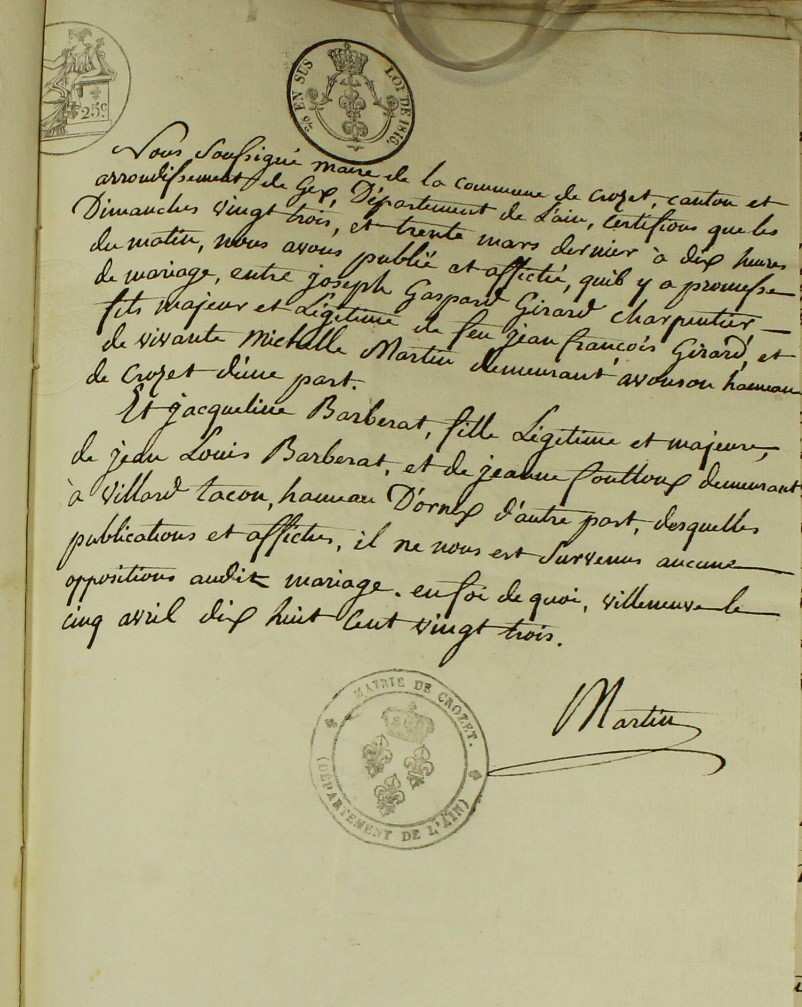 25c
20 EN SUS LOI DE 1816.
Nous Soussigné maire de la commune de Crozet, canton et
arrondissement de Gex, Département de L'ain, Certifions que les
Dimanches vingt trois, et trente mars dernier à dix heures
du matin, nous avons publié et affiché, qu'il y a promesse
de mariage, entre joseph Gaspard Girard Charpentier
fils majeur et Légitime de feu jean françois Girard, et
de vivante Michelle Martin demeurant avouson hameau
de Crozet d'une part.
Et jacqueline Barberat, fille Légitime et majeure,
de jean Louis Barberat, et de jeanne demeurant
à Villard tacon, hameau D'ornex d'autre part, desquelles
publications et affiches, il ne nous est Survenus aucune
oppositions audit mariage. en foi de quoi, villeneuve le
cinq avril dix huit Cent vingt trois.
Martin
MAIRIE DE CROZET.
(DÉPARTEMENT DE L'AIN)